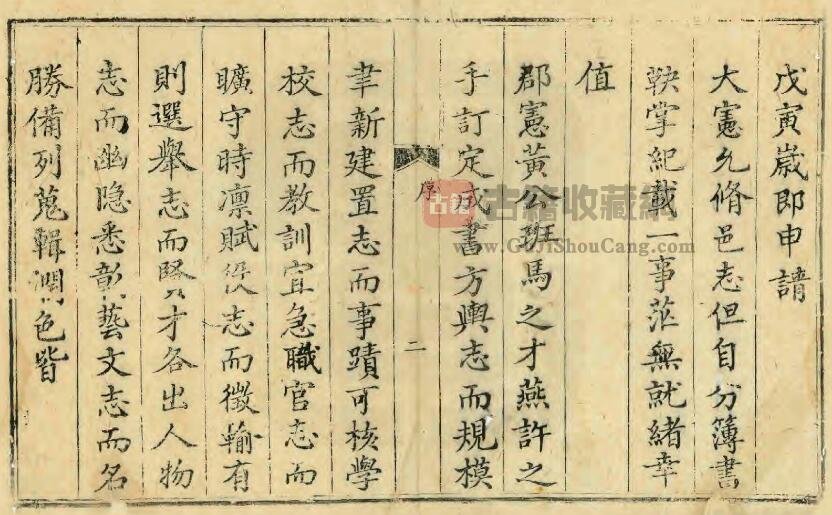 戊寅歲即申請
大憲允脩邑志但自分簿書
鞅掌紀載一事茫無就緒幸
值
郡憲黃公班馬之才燕許之
手訂定成書方輿志而規模
序
二
聿新建置志而事蹟可核學
校志而教訓宜急職官志而
曠守時凛賦役志而徵輸有
則選舉志而賢才各出人物
志而幽隐悉彰藝文志而名
勝備列蒐輯潤色皆
古籍 古籍收藏網
www.GuJiShouCang.com